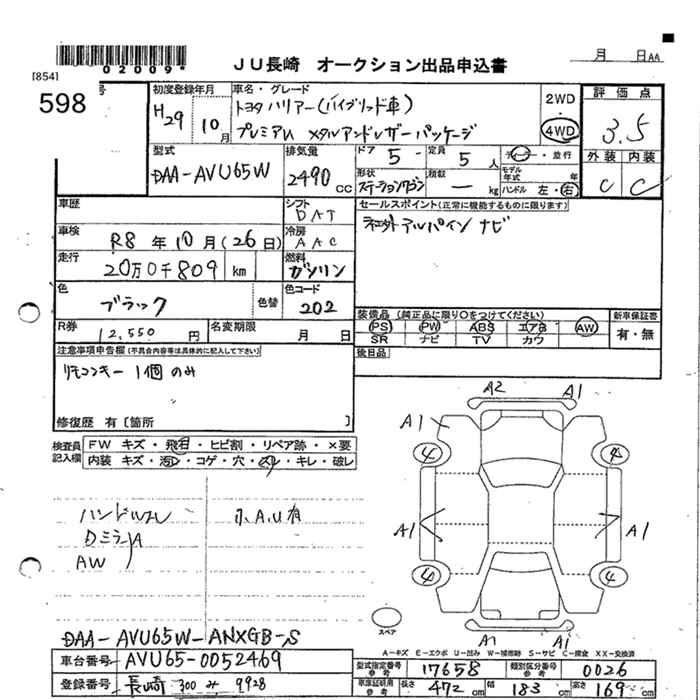 02009*
[854]
JU長崎 オークション出品申込書
月 日AA
号
598
初度登録年月
H29 10月
車名・グレード
トヨタ ハリアー(ハイブリッド車)
プレミアム メタル アンド レザー パッケージ
2WD
4WD
評価点
3.5
型式
DAA-AVU65W
排気量
2490 CC
ドア 5
定員 5 人
ディーラー・並行
外装 内装
C C
形状
ステーションワゴン
積載 ー kg
モデル年式 年
ハンドル 左・右
車歴
シフト
DAT
セールスポイント(正常に機能するものに限ります)
社外 アルパイン ナビ
車検
R8 年 10 月(26 日)
冷房
AAC
走行
20万0千809 km
燃料
ガソリン
色
ブラック
色替
色コード
202
装備品(純正品に限り○をつけてください)
新車保証書
PS PW ABS エアB AW
SR ナビ TV カワ
有・無
R券
12,550 円
名変期限
月 日
後日品
注意事項申告欄(不具合内容等は具体的に記入して下さい)
リモコンキー 1個 のみ
修復歴 有[箇所 ]
検査員記入欄
FW キズ・飛石・ヒビ割・リペア跡・×要
内装 キズ・汚レ・コゲ・穴・スレ・キレ・破レ
ハンドルスレ
Dミラー A
AW
小、A、U有
A2 A1
A1
4 4
A1 A1
4 4
スペア
A1 A1
A-キズ E-エクボ U-凹み W-補修跡 S-サビ C-腐食 XX-交換済
DAA-AVU65W-ANXGB-S
車台番号 AVU65-0052469
登録番号 長崎 300 み 9928
型式指定番号 参考 17658
類別区分番号 参考 0026
車庫証明用 参考 長さ 472 cm 幅 183 高さ 169 cm